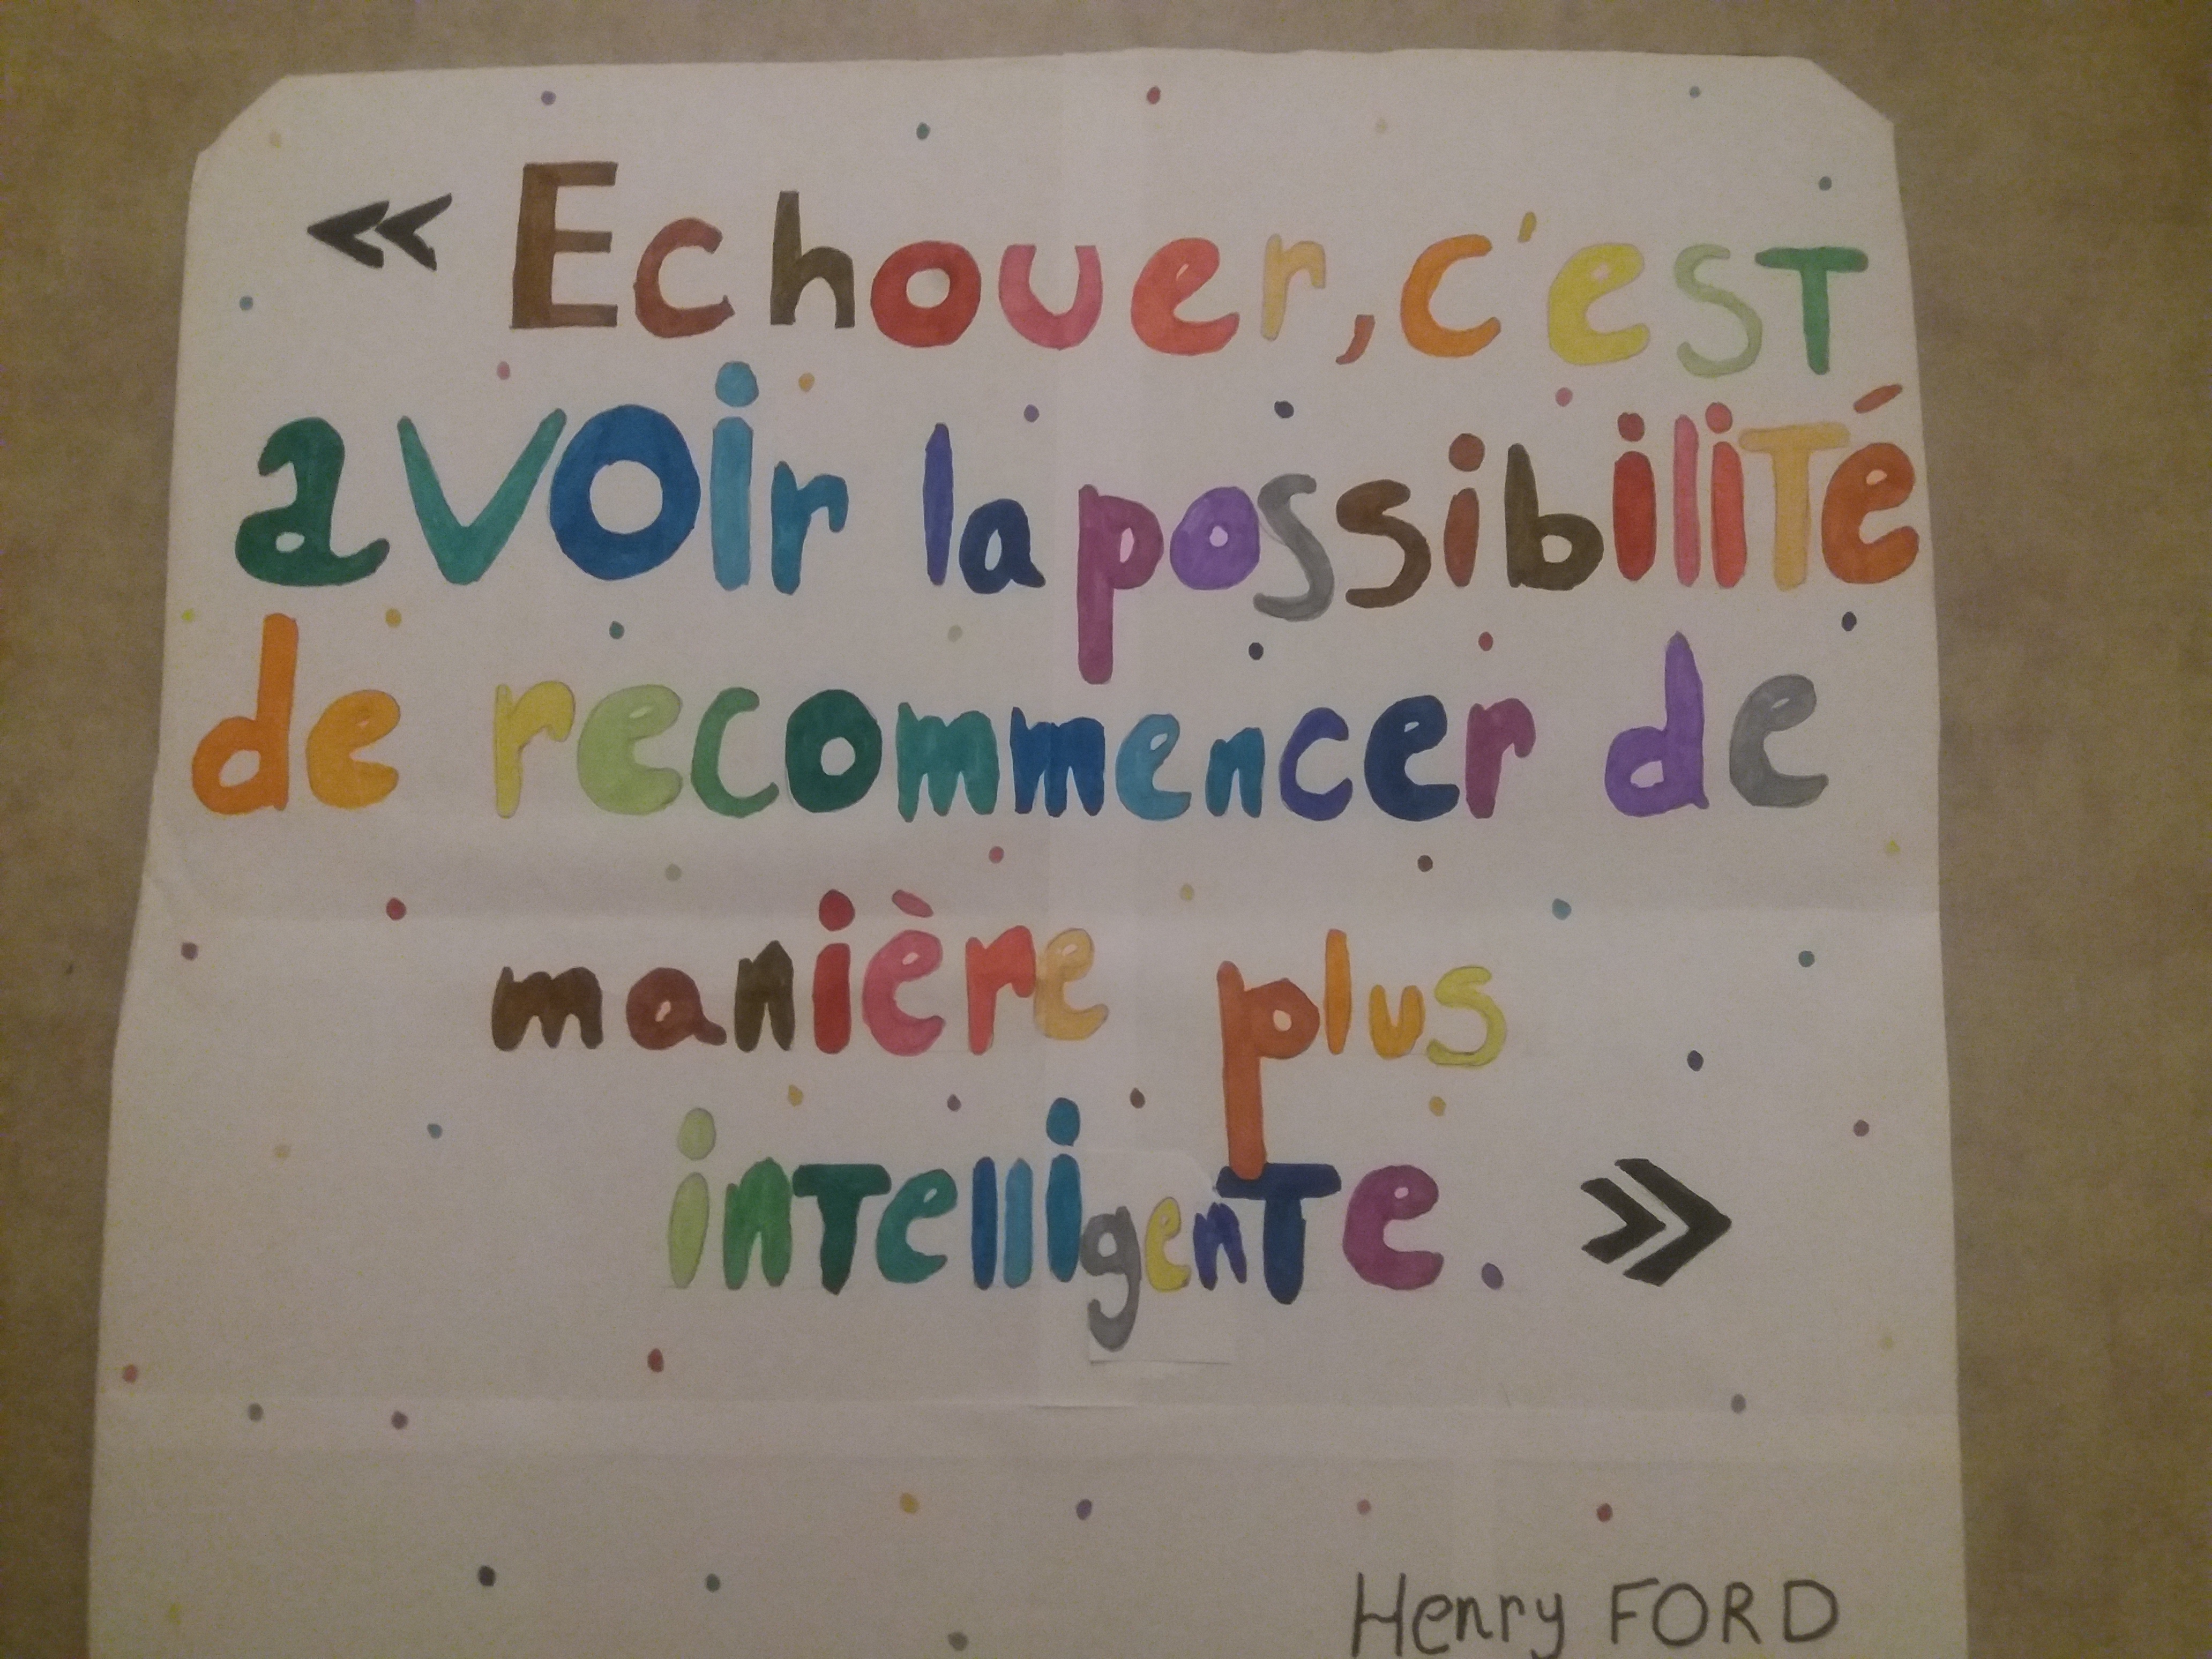 « Echouer, c'est
avoir la possibilité
de recommencer de
manière plus
intelligente. »
Henry FORD